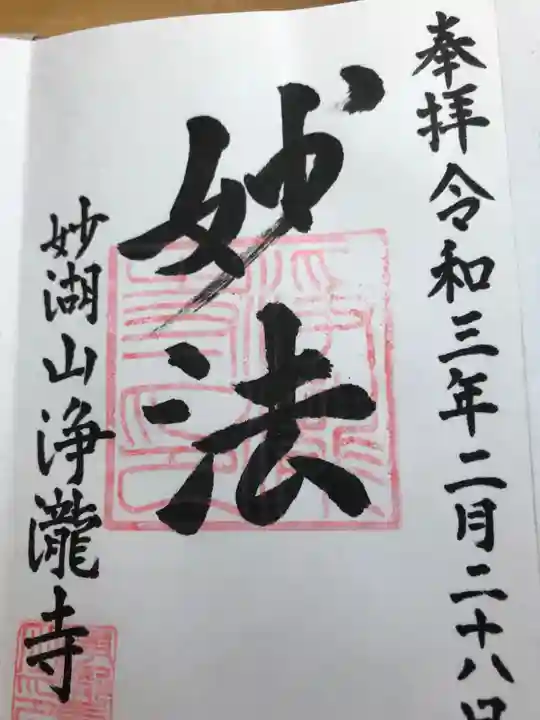 奉拝令和三年二月二十八日
妙法
妙湖山浄瀧寺